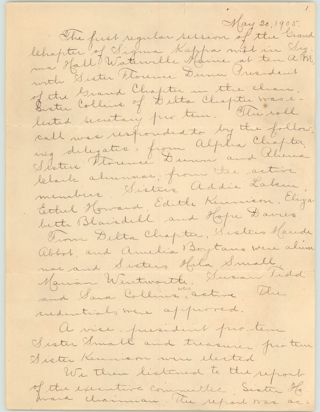 1.
May 20, 1905.
The first regular session of the Grand
Chapter of Sigma Kappa met in Sig-
ma Hall Waterville Maine at ten A.M.
with Sister Florence Dunn President
of the Grand Chapter in the chair.
Sister Collins of Delta Chapter was e-
lected secretary pro tem. The roll
call was responded to by the follow-
ing delegates, from Alpha Chapter,
Sisters Florence Dunn and
Clark alumnae, from the active
members Sisters Addie Lakin,
Ethel Howard Edith Kennison, Eliza-
beth Blaisdell and Hope Davies
From Delta Chapter, Sisters Maude
Abbot, and Amelia were alum-
nae and Sisters Small,
Marian Wentworth, Susan Tidd
and Sara Collins, were active The
credentials were approved.
A vice president pro tem
Sister Small and treasurer pro tem
Sister Kennison were elected
We then listened to the report
of the executive committee, Sister Ho-
ward chairman. The report was ac-